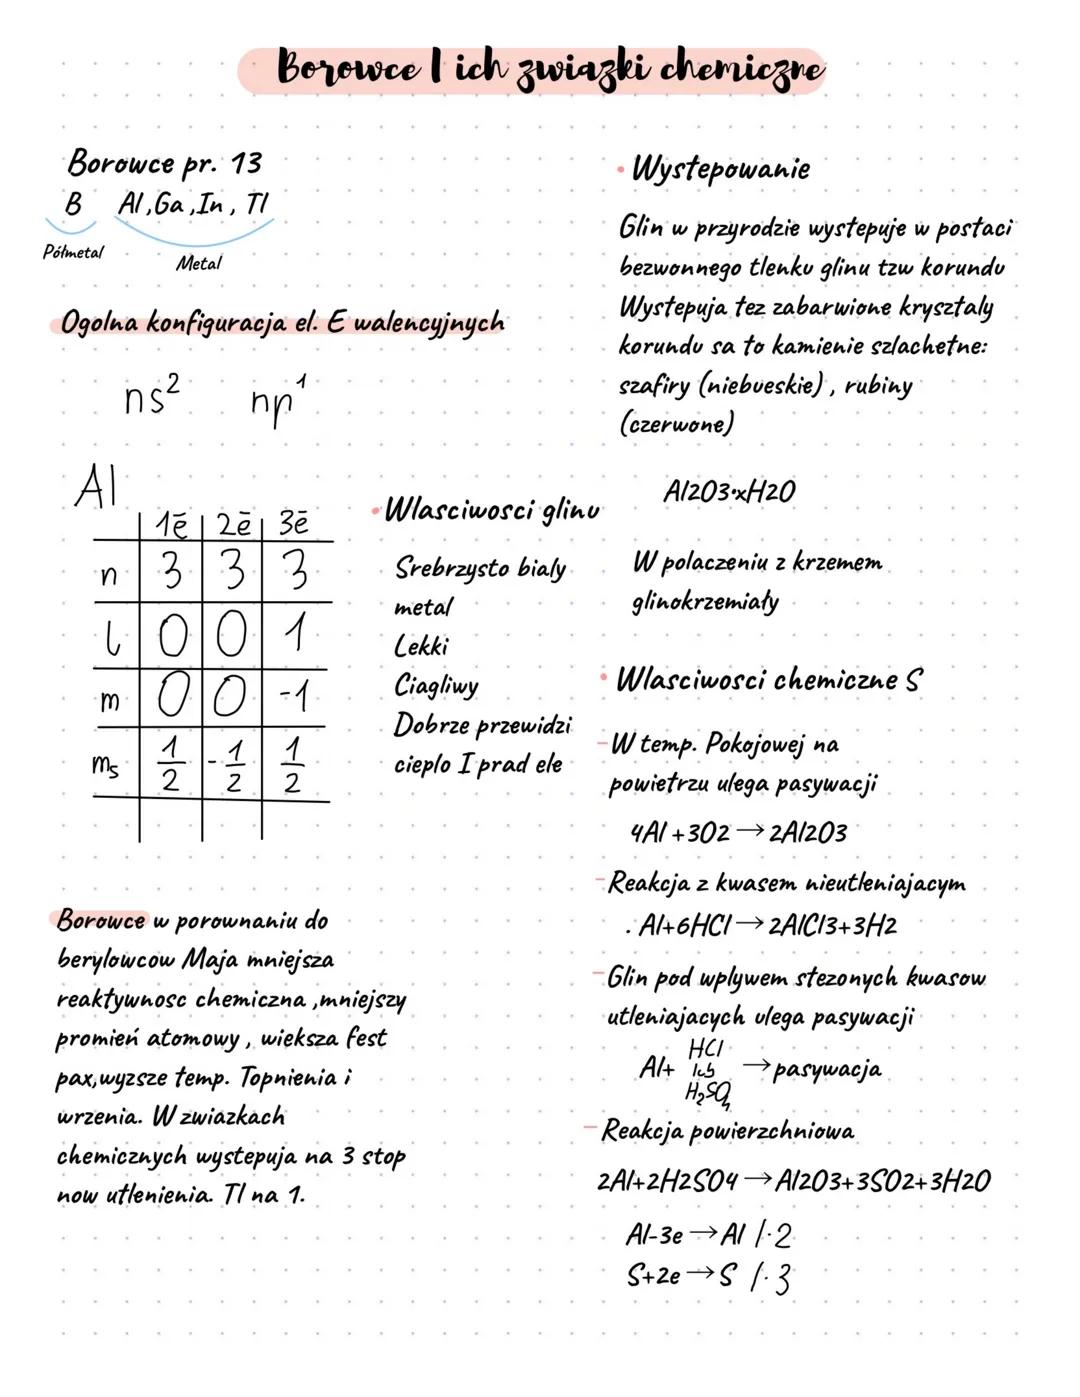 Borowce I ich zwiazki chemiczne
Borowce pr. 13
B Al,Ga,In, Tl
Półmetal
Metal
Ogolna konfiguracja el. E walencyjnych
ns² np¹
Al
1ē 2ē 3ē
n 3 3 3
l 0 0 1
m 0 0 -1
ms 1/2 -1/2 1/2
Borowce w porownaniu do
berylowcow Maja mniejsza
reaktywnosc chemiczna ,mniejszy
promień atomowy, wieksza fest
pax,wyzsze temp. Topnienia i
wrzenia. W zwiazkach
chemicznych wystepuja na 3 stop
now utlenienia. Tl na 1.
• Wlasciwosci glinu
Srebrzysto bialy
metal
Lekki
Ciagliwy
Dobrze przewidzi
cieplo I prad ele
• Wystepowanie
Glin w przyrodzie wystepuje w postaci
bezwonnego tlenku glinu tzw korundu
Wystepuja tez zabarwione krysztaly
korundu sa to kamienie szlachetne:
szafiry (niebueskie), rubiny
(czerwone)
Al2O3·xH2O
W polaczeniu z krzemem
glinokrzemiały
• Wlasciwosci chemiczne S
-W temp. Pokojowej na
powietrzu ulega pasywacji
4Al +3O2→2Al2O3
-Reakcja z kwasem nieutleniajacym
. Al+6HCl→2AlCl3+3H2
-Glin pod wplywem stezonych kwasow
utleniajacych ulega pasywacji
HCl
Al+ lub →pasywacja
H₂SO₄
-Reakcja powierzchniowa
2Al+2H2SO4→Al2O3+3SO2+3H2O
Al-3e→Al /·2
S+2e→S /·3